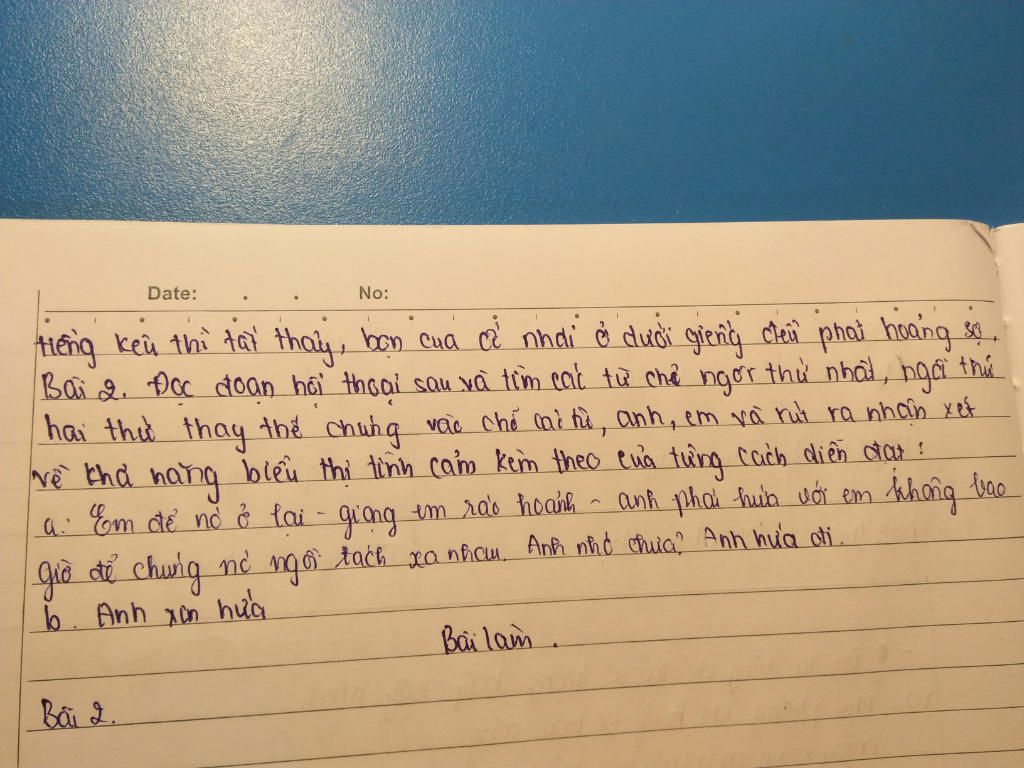 Date: . . No:
tiếng kêu thì tất thảy, bọn cua cề nhdi ở dưới giếng đều phải hoảng sợ.
Bài 2. Đọc đoạn hội thoại sau và tìm các từ chỉ ngôi thứ nhất, ngôi thứ
hai thử thay thế chúng vào chỗ cái từ, anh, em và rút ra nhận xét
về khả năng biểu thị tình cảm kèm theo của từng cách diễn đạt:
a: Em để nó ở lại - giọng em ráo hoảnh - anh phải hứa với em không bao
giờ để chúng nó ngồi tách xa nhau. Anh nhớ chưa? Anh hứa đi.
b. Anh xin hứa
Bài làm.
Bài 2.